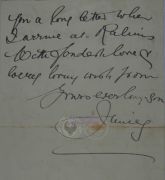 you a long letter when
I arrive at Kalims
With fondest love &
every loving wish from
Your ever loving Son
James